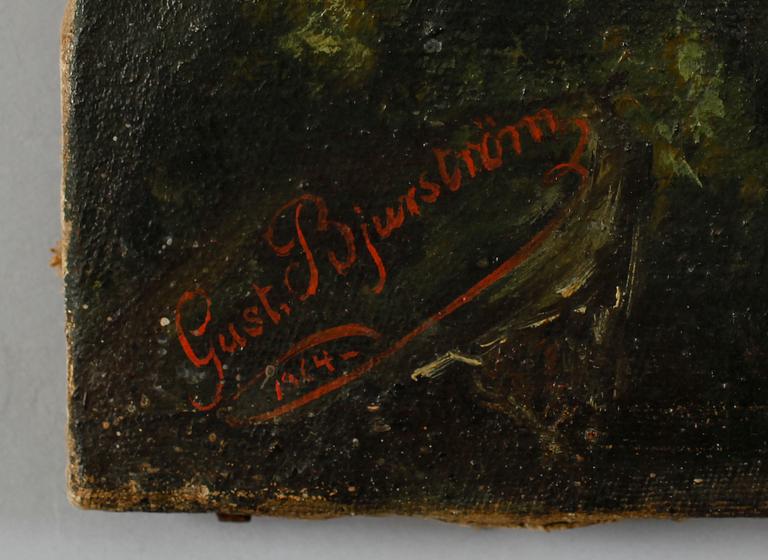 Gust. Bjurström
1914-